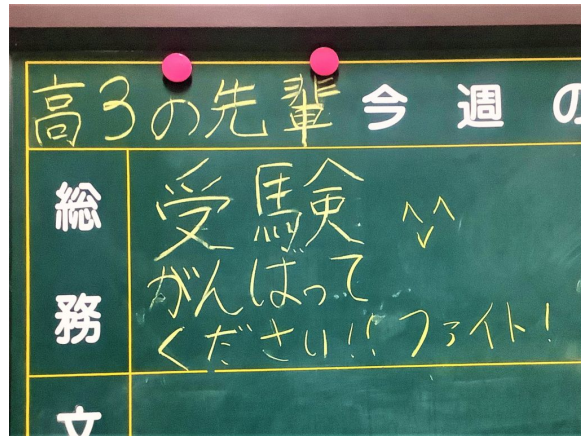 高3の先輩 今週の
総務
受験 ^^
がんばって
ください!! ファイト!
文